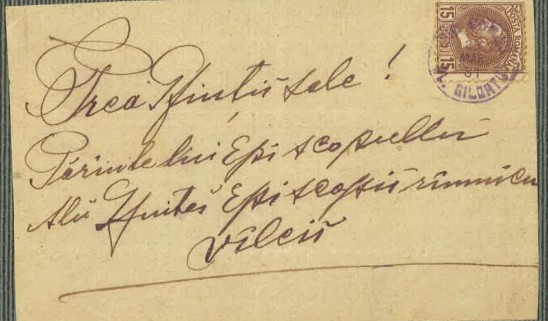 15 POSTA ROMANA 15
GILORTU
Prea Sfinții sale!
Părintelui Episcopului
Alŭ Sfintei Episcopii rîmnicu
Vîlciĭ